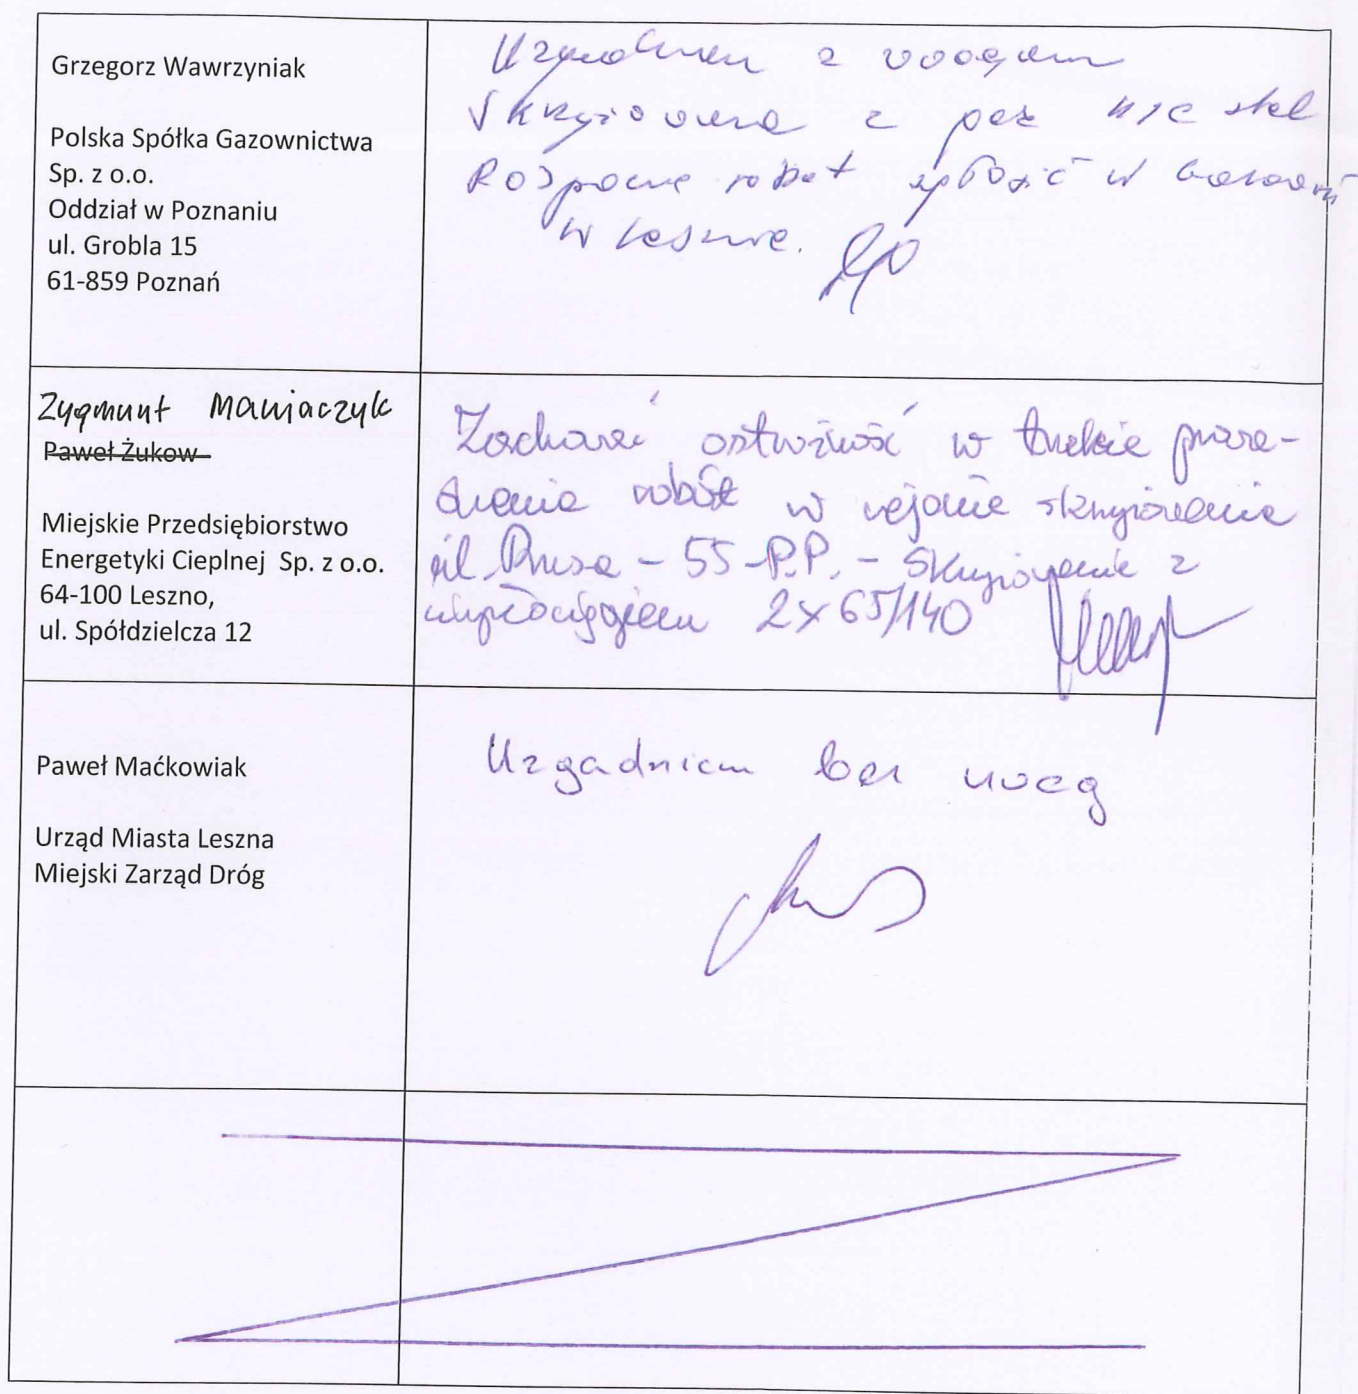 Grzegorz Wawrzyniak
Polska Spółka Gazownictwa
Sp. z o.o.
Oddział w Poznaniu
ul. Grobla 15
61-859 Poznań
z
z
robót zgłosić w
w Lesznie.
Zygmunt Maniaczyk
Paweł Żukow
Miejskie Przedsiębiorstwo
Energetyki Cieplnej Sp. z o.o.
64-100 Leszno,
ul. Spółdzielcza 12
Zachować ostrożność w trakcie prowa-
dzenia robót w rejonie skrzyżowania
ul. Prusa - 55 -P.P. - Skrzyżowanie z
ciepłociągiem 2x65/140
Paweł Maćkowiak
Urząd Miasta Leszna
Miejski Zarząd Dróg
Uzgadniam bez uwag